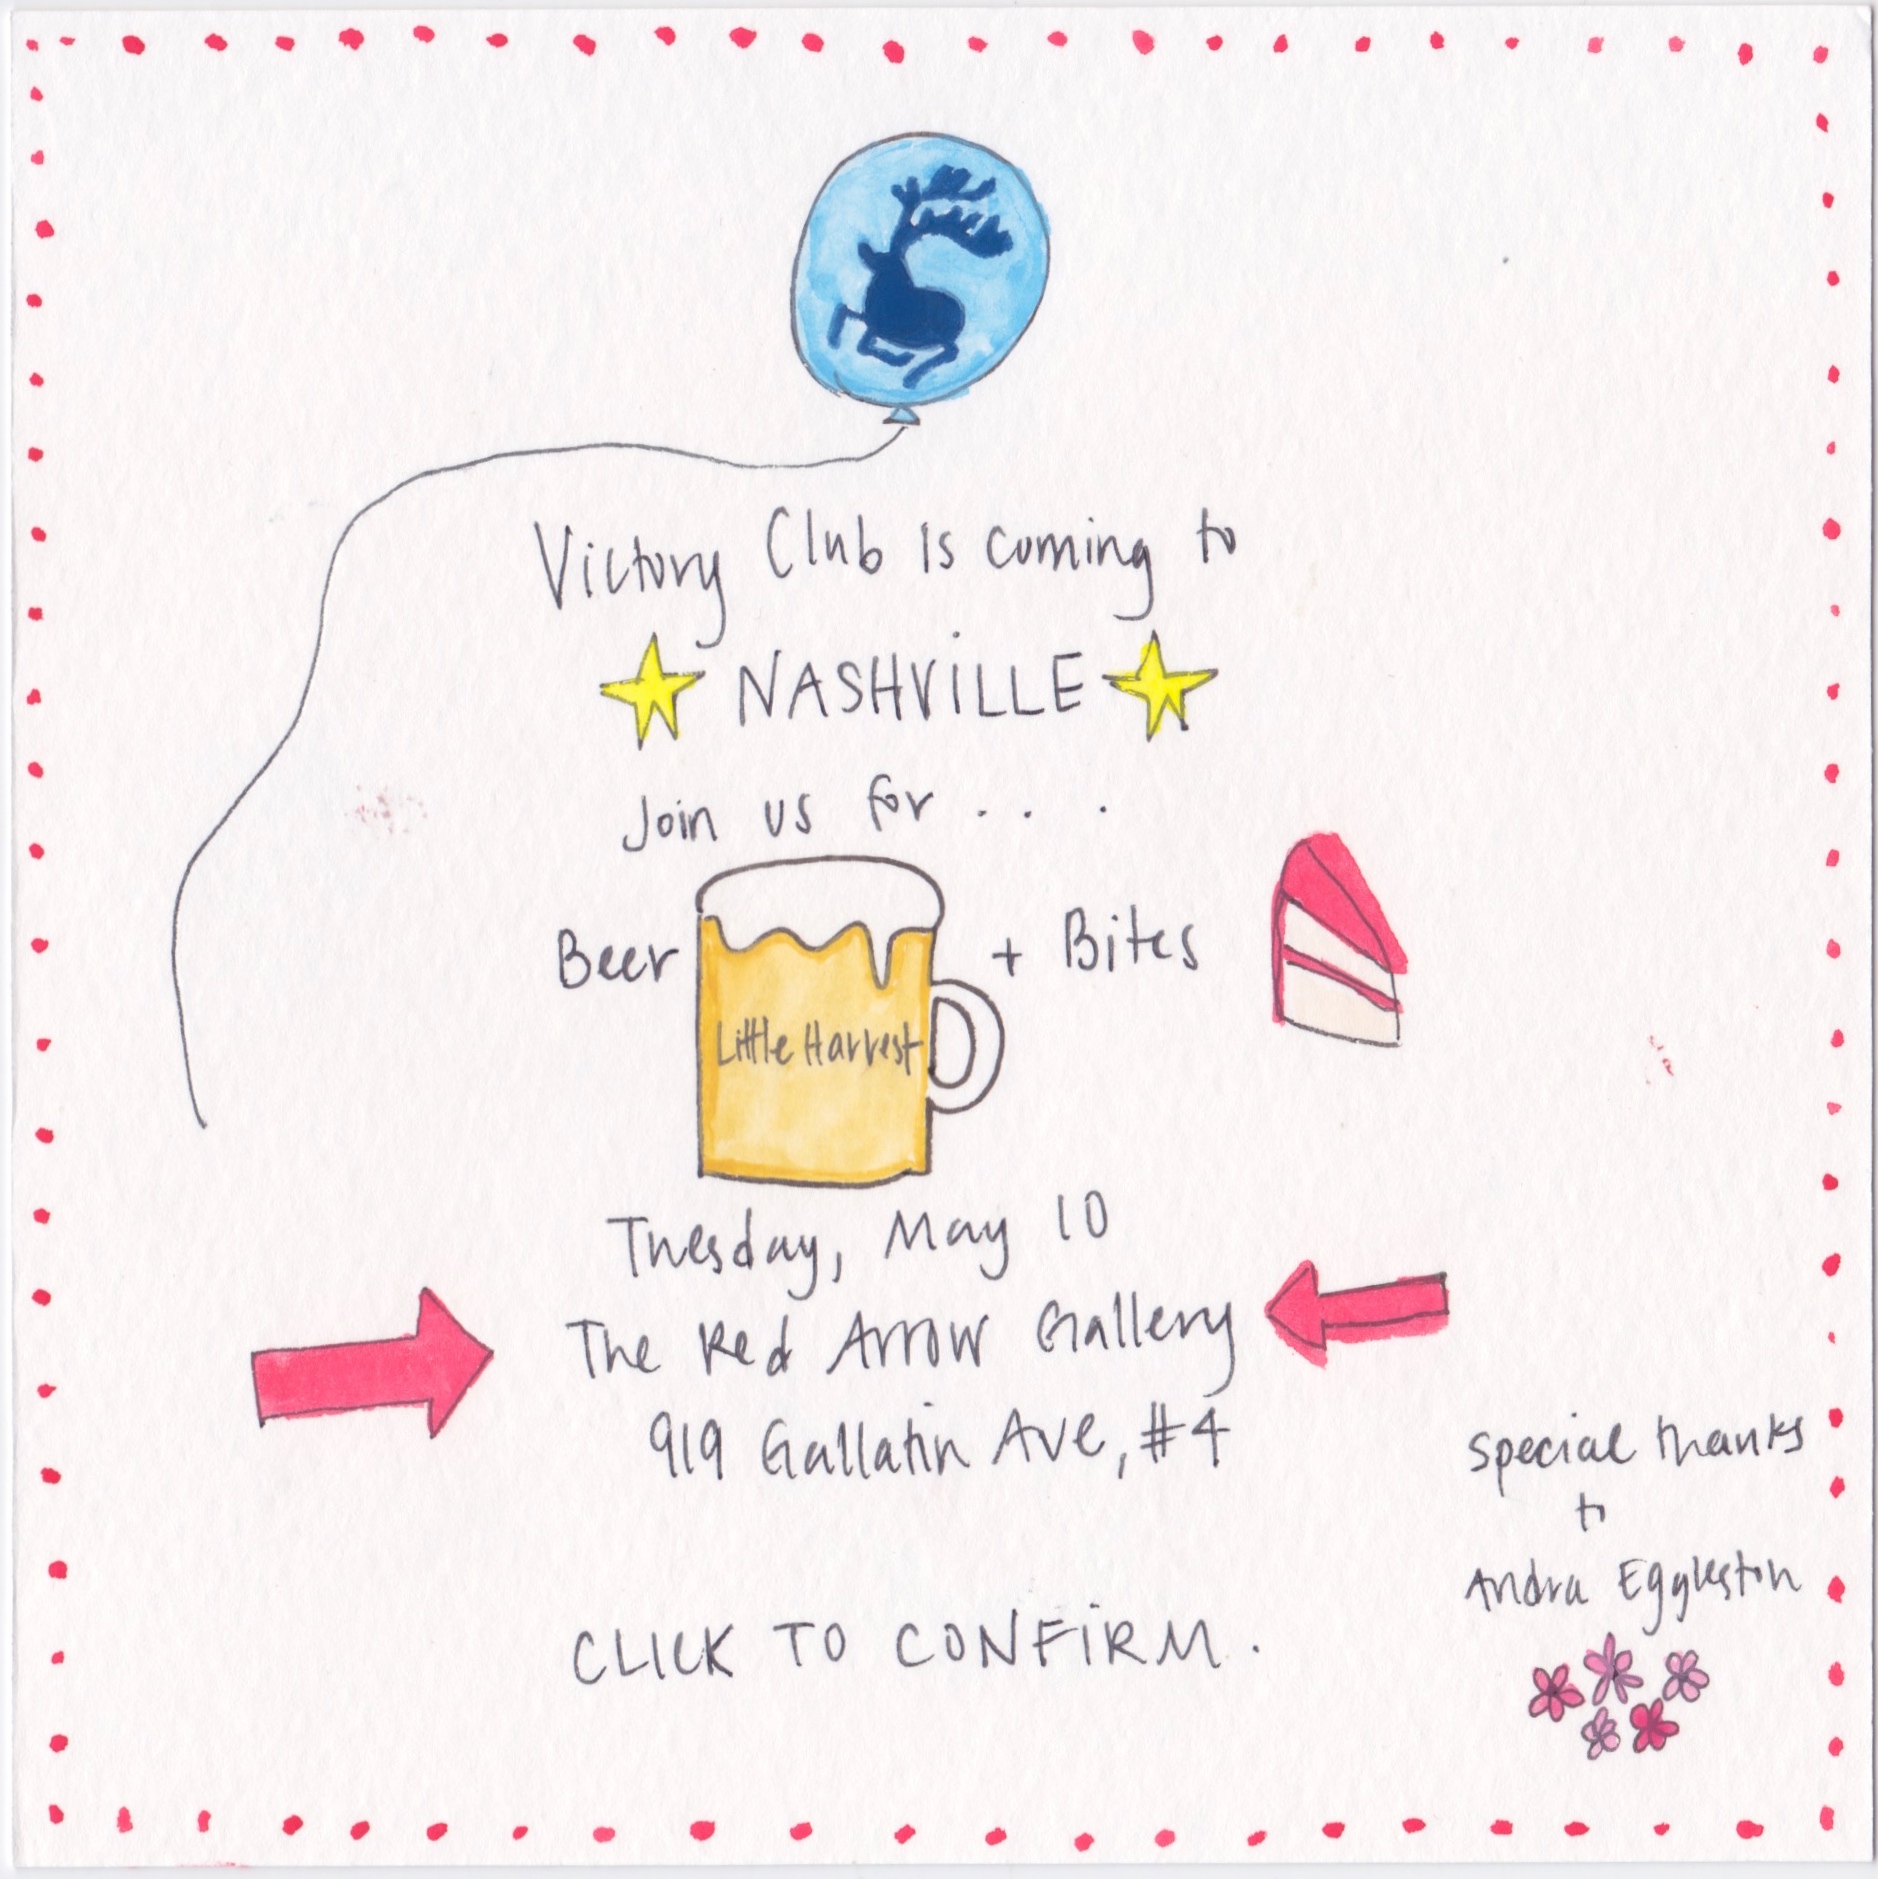 Victory Club is coming to
NASHVILLE
Join us for . . . .
Beer + Bites
Little Harvest
Tuesday, May 10
The Red Arrow Gallery
919 Gallatin Ave, #4
special thanks
to
Andra Eggleston
CLICK TO CONFIRM.